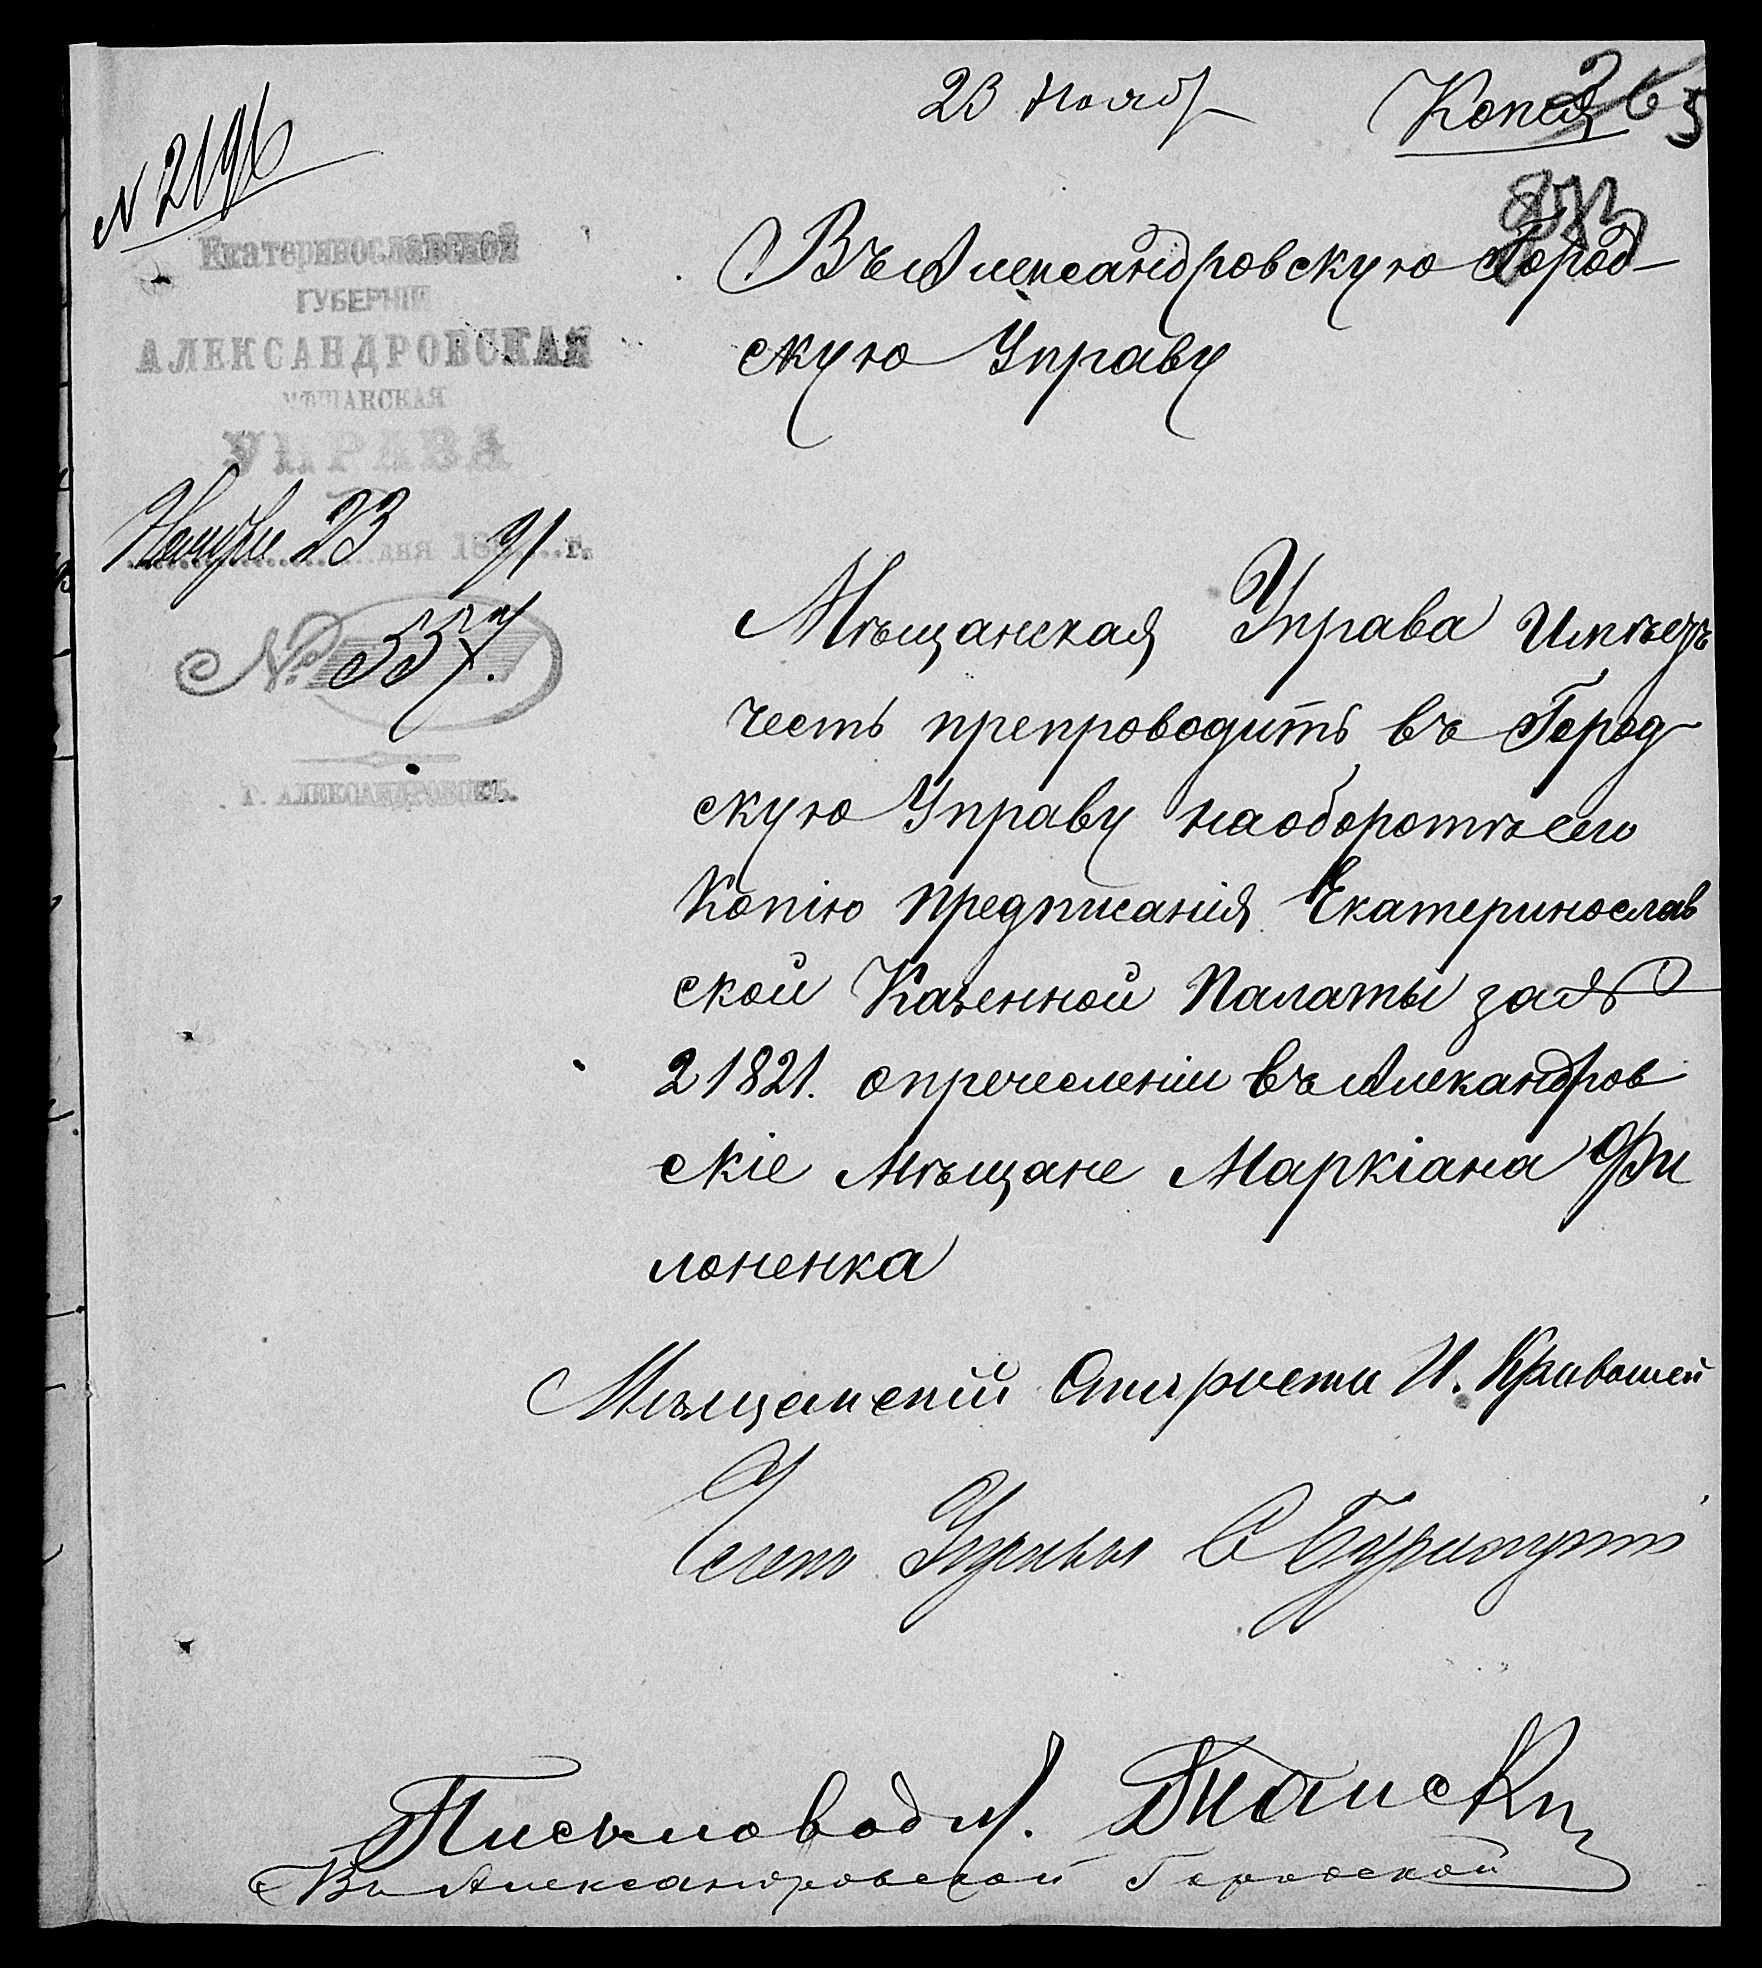 23 Нояб
Копія
№ 2196
Екатеринославской
ГУБЕРНІИ
АЛЕКСАНДРОВСКАЯ
МѢЩАНСКАЯ
УПРАВА
Ноября 23 дня 1891 г.
№ 557.
Г. АЛЕКСАНДРОВСКЪ.
Въ Александровскую Город-
скую Управу
Мѣщанская Управа Имѣетъ
честь препроводить въ Город
скую Управу на оборотѣ сего
Копію предписанія Екатеринослав
ской Казенной Палаты за №
21821. о пречесленіи въ Алекандров
скіе Мѣщане Маркіана Фи
лоненка
Мѣщанскій Староста И. Кривошей
Члены Управы
Письмовод.
Въ Александровской Городской